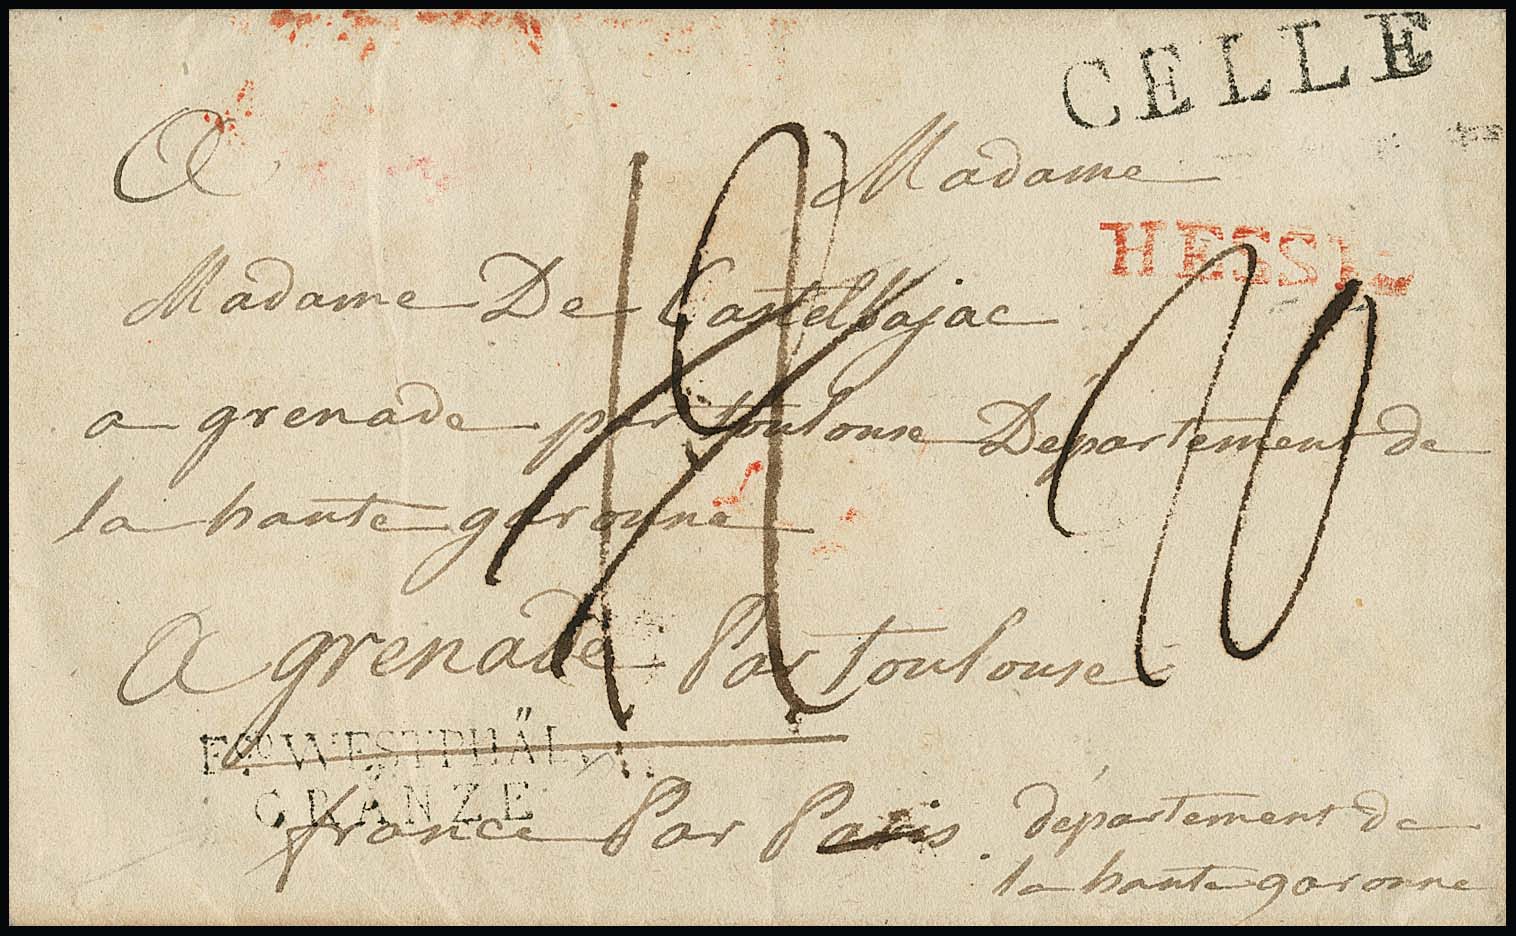 CELLE
A Madame
HESSE
Madame De Castelbajac
a grenade par toulouse Departement de
la haute garonne
A grenade Par Toulouse
Fco. WESTPHÄL:
GRÄNZE
france Par Paris. département de
la haute garonne